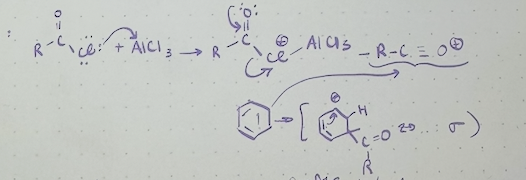 : R-C(=O)-Cl: + AlCl3 → R-C(=:O:)-Cl⊕-AlCl3 - R-C≡O⊕
→ [ ⊕ H C=O R ↔ ... σ )